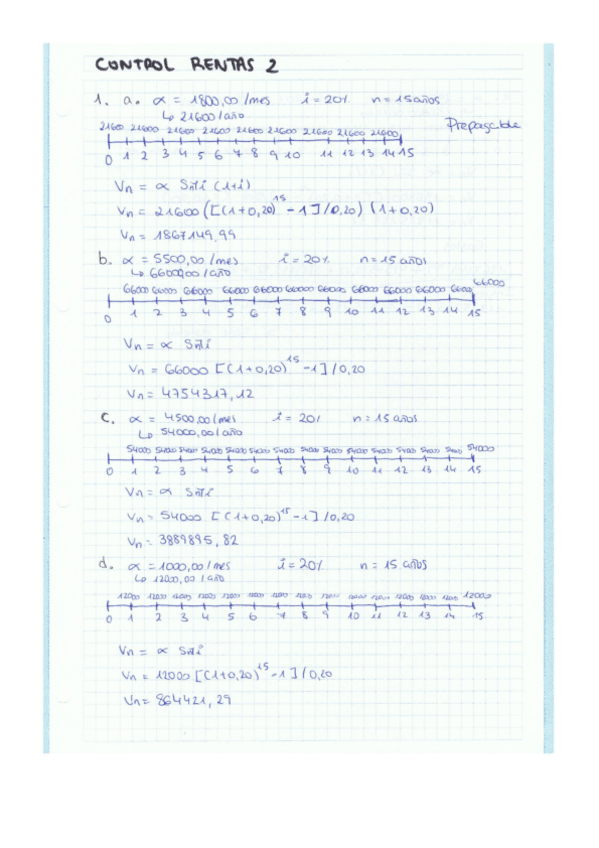 CONTROL RENTAS 2
1. a. α = 1800,00 /mes i = 20% n = 15 años
↳ 21600 /año
21600 21600 21600 21600 21600 21600 21600 21600 21600 Prepagable
0 1 2 3 4 5 6 7 8 9 10 11 12 13 14 15
Vn = α Sn̄i (1+i)
Vn = 21600 ([(1+0,20)^15 - 1] / 0,20) (1+0,20)
Vn = 1867149,99
b. α = 5500,00 /mes i = 20% n = 15 años
↳ 66000,00 /año
66000 66000 66000 66000 66000 66000 66000 66000 66000 66000 66000 66000 66000
0 1 2 3 4 5 6 7 8 9 10 11 12 13 14 15
Vn = α Sn̄i
Vn = 66000 [(1+0,20)^15 - 1] / 0,20
Vn = 4754317,12
c. α = 4500,00 /mes i = 20% n = 15 años
↳ 54000,00 /año
54000 54000 54000 54000 54000 54000 54000 54000 54000 54000 54000 54000 54000 54000 54000
0 1 2 3 4 5 6 7 8 9 10 11 12 13 14 15
Vn = α Sn̄i
Vn = 54000 [(1+0,20)^15 - 1] / 0,20
Vn = 3889895,82
d. α = 1000,00 /mes i = 20% n = 15 años
↳ 12000,00 /año
12000 12000 12000 12000 12000 12000 12000 12000 12000 12000 12000 12000 12000 12000 12000
0 1 2 3 4 5 6 7 8 9 10 11 12 13 14 15
Vn = α Sn̄i
Vn = 12000 [(1+0,20)^15 - 1] / 0,20
Vn = 864421,29